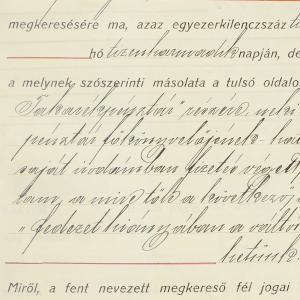 megkeresésére ma, azaz egyezerkilenczszáz
hó tizenharmadik napján, de
a melynek szószerinti másolata a tulsó oldalo
Takarékpénztár részére, neki
pénztár főkönyvelőjének
saját irodámban fizetés végett
tam, a mire tőle a következő
„fedezet hiányzában a válto
letünk
Miről, a fent nevezett megkereső fél jogai